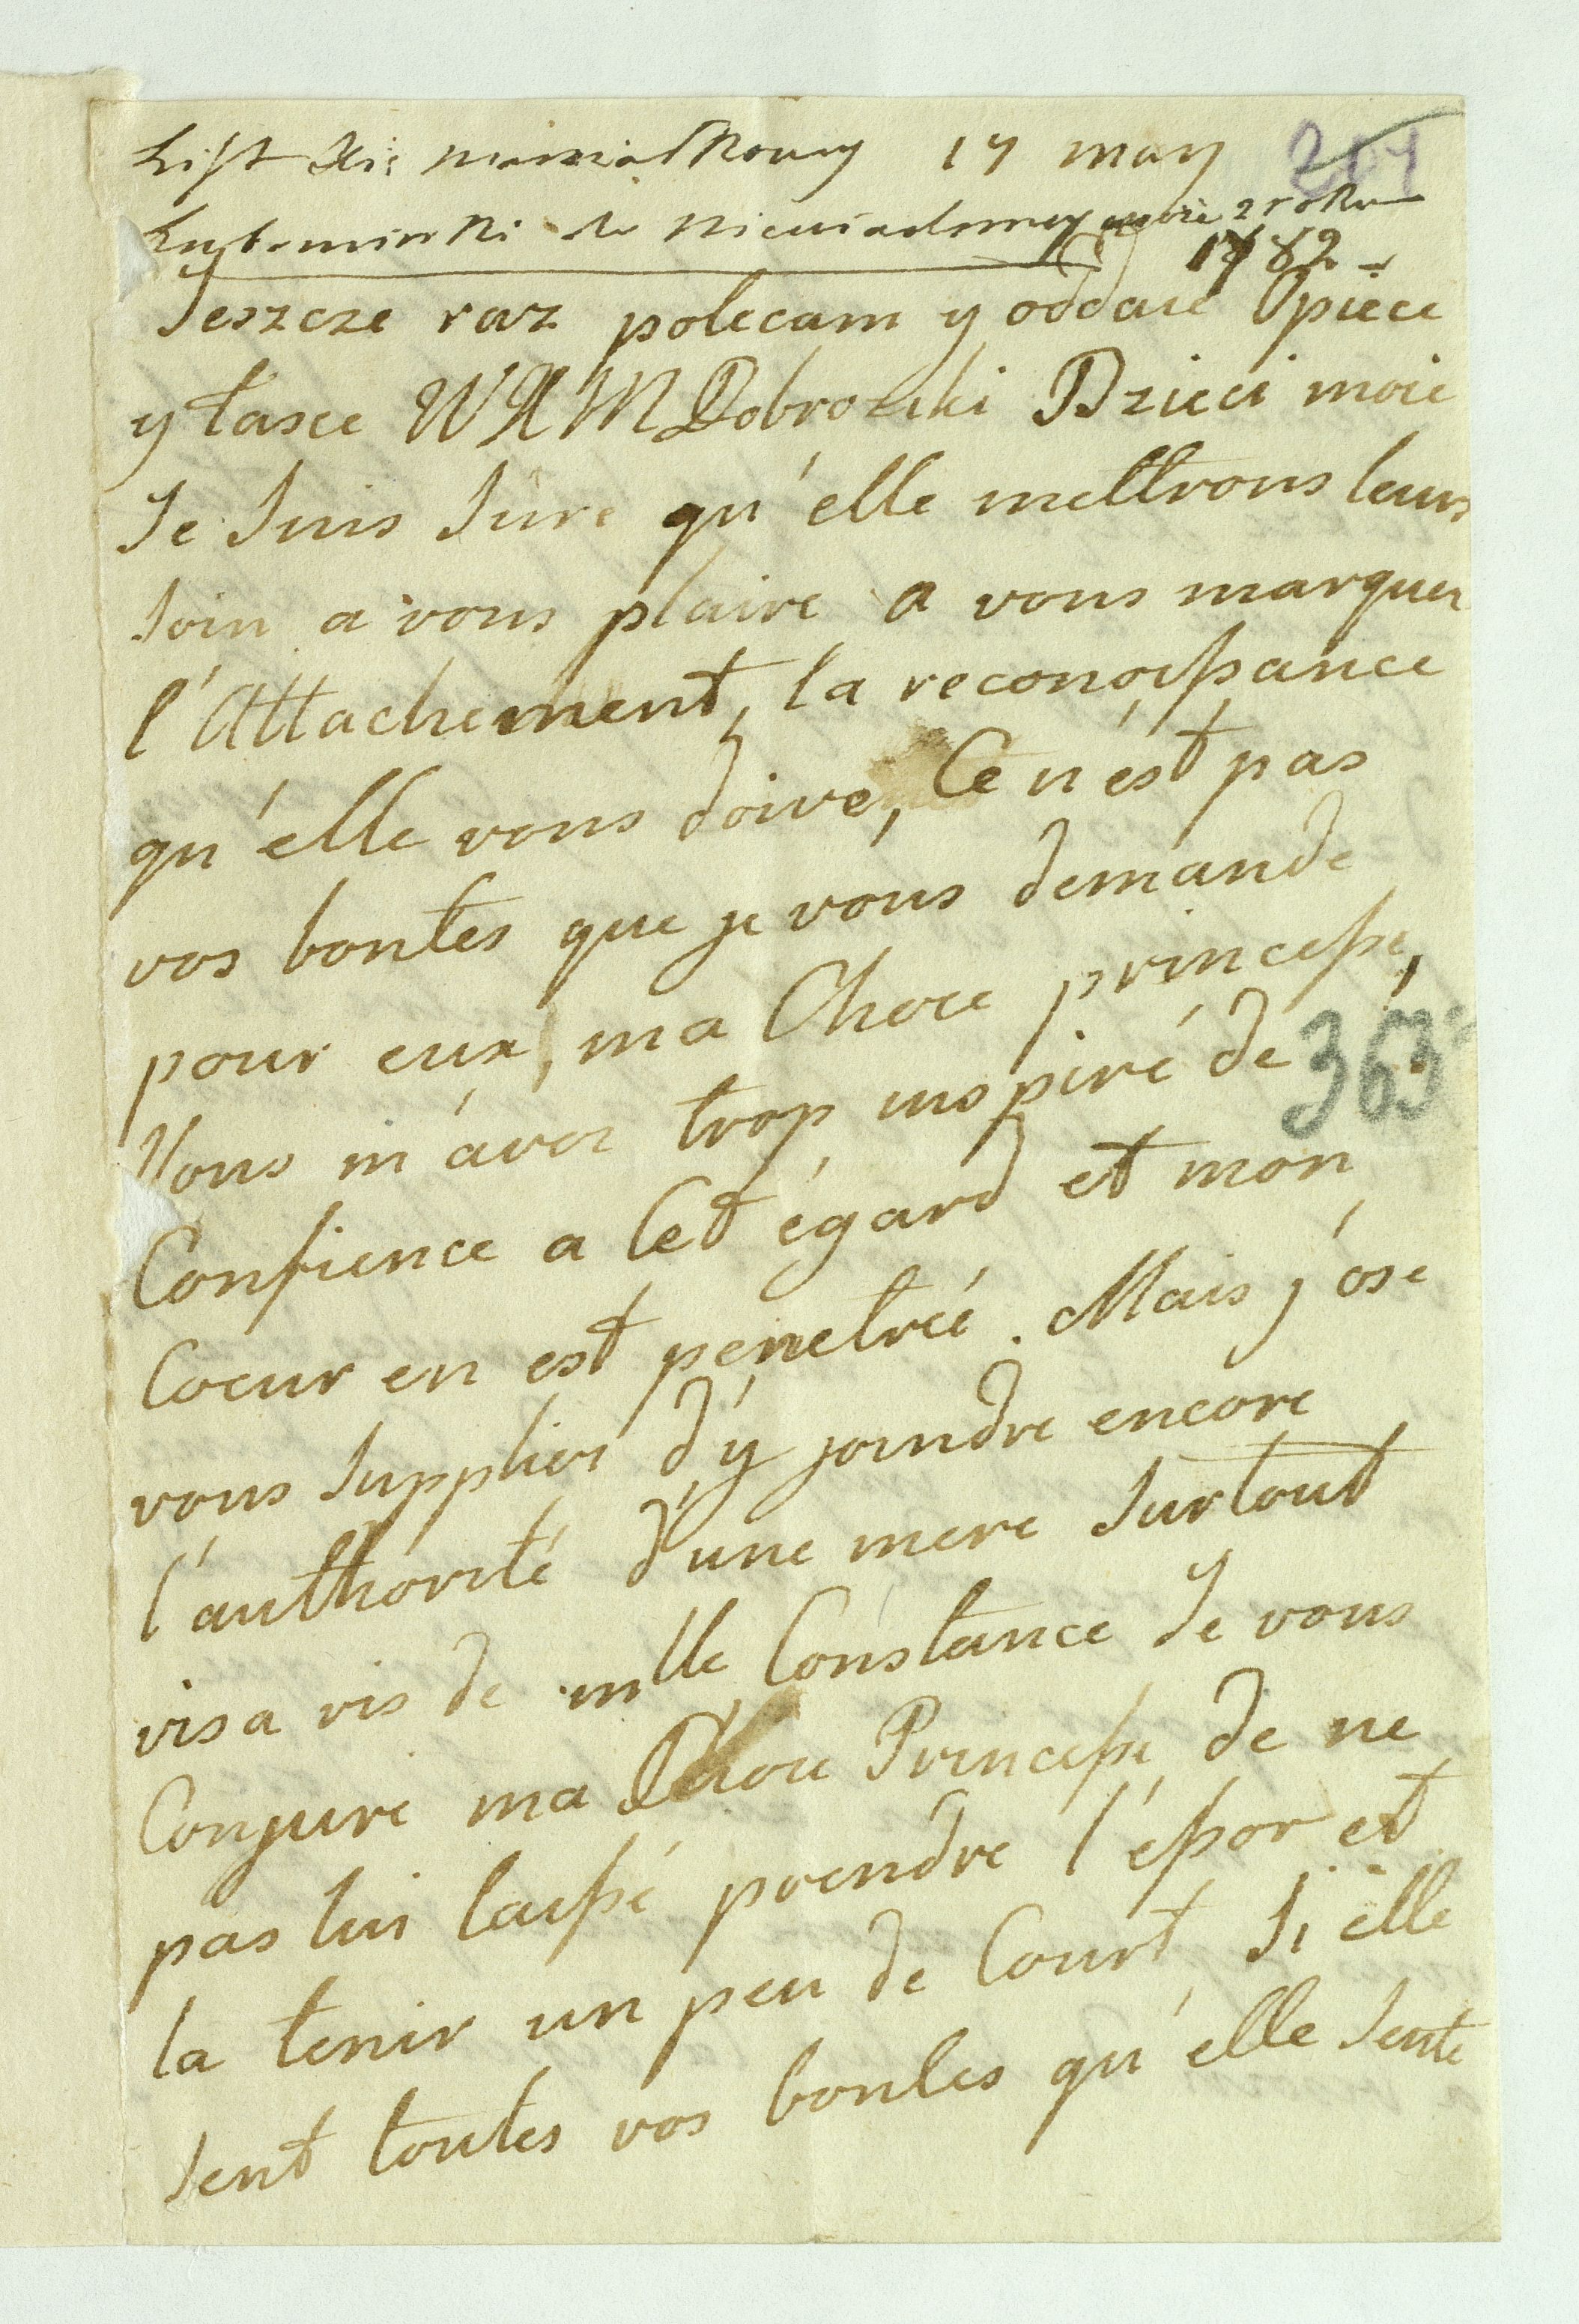 List Xię: Marszałkowy 17 may 204
Lubomirski do Niewiadomey może z roku
1782.
Jeszcze raz polecam y oddaie Opiece
y łasce W X M Dobrodziki Dzieci moie
Je suis sure qu'elle mettrons leurs
soin a vous plaire a vous marquer
l'Attachement, la reconoissance
qu'elle vous doive, Ce n'est pas
vos bontes que je vous demande
pour eux, ma Chere princesse,
Vous m'aver trop inspiré de 363
Confience a Cet égard et mon
Coeur en est penetreé. Mais j'ose
vous supplier d'y joindre encore
l'authorité d'une mere surtout
vis a vis de mlle Constance Je vous
Conjure ma Chere Princesse de ne
pas lui laissé prendre l'essor et
la tenir un peu de Court, si elle
sent toutes vos bontes qu'elle sente